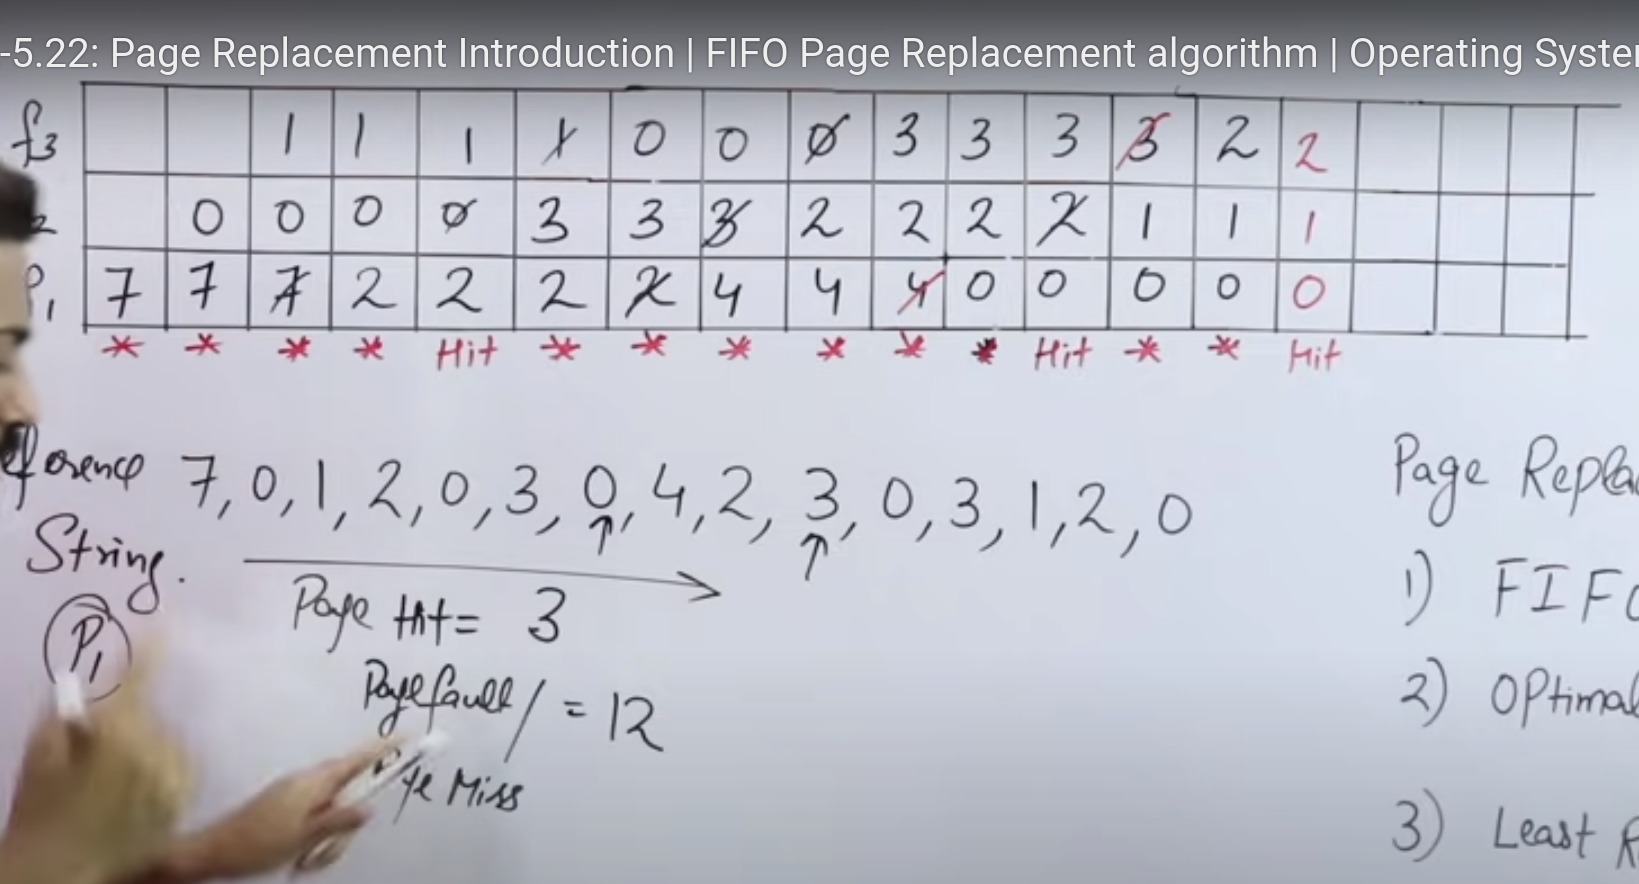 -5.22: Page Replacement Introduction | FIFO Page Replacement algorithm | Operating Syste
f3 1 1 1 1 0 0 0 3 3 3 3 2 2
2 0 0 0 0 3 3 3 2 2 2 2 1 1 1
1 7 7 7 2 2 2 2 4 4 4 0 0 0 0 0
* * * * Hit * * * * * * Hit * * Hit
eference 7, 0, 1, 2, 0, 3, 0, 4, 2, 3, 0, 3, 1, 2, 0
String.
P1
Page Hit = 3
Page fault / = 12
ge Miss
Page Repla
1) FIFO
2) OPtimal
3) Least R